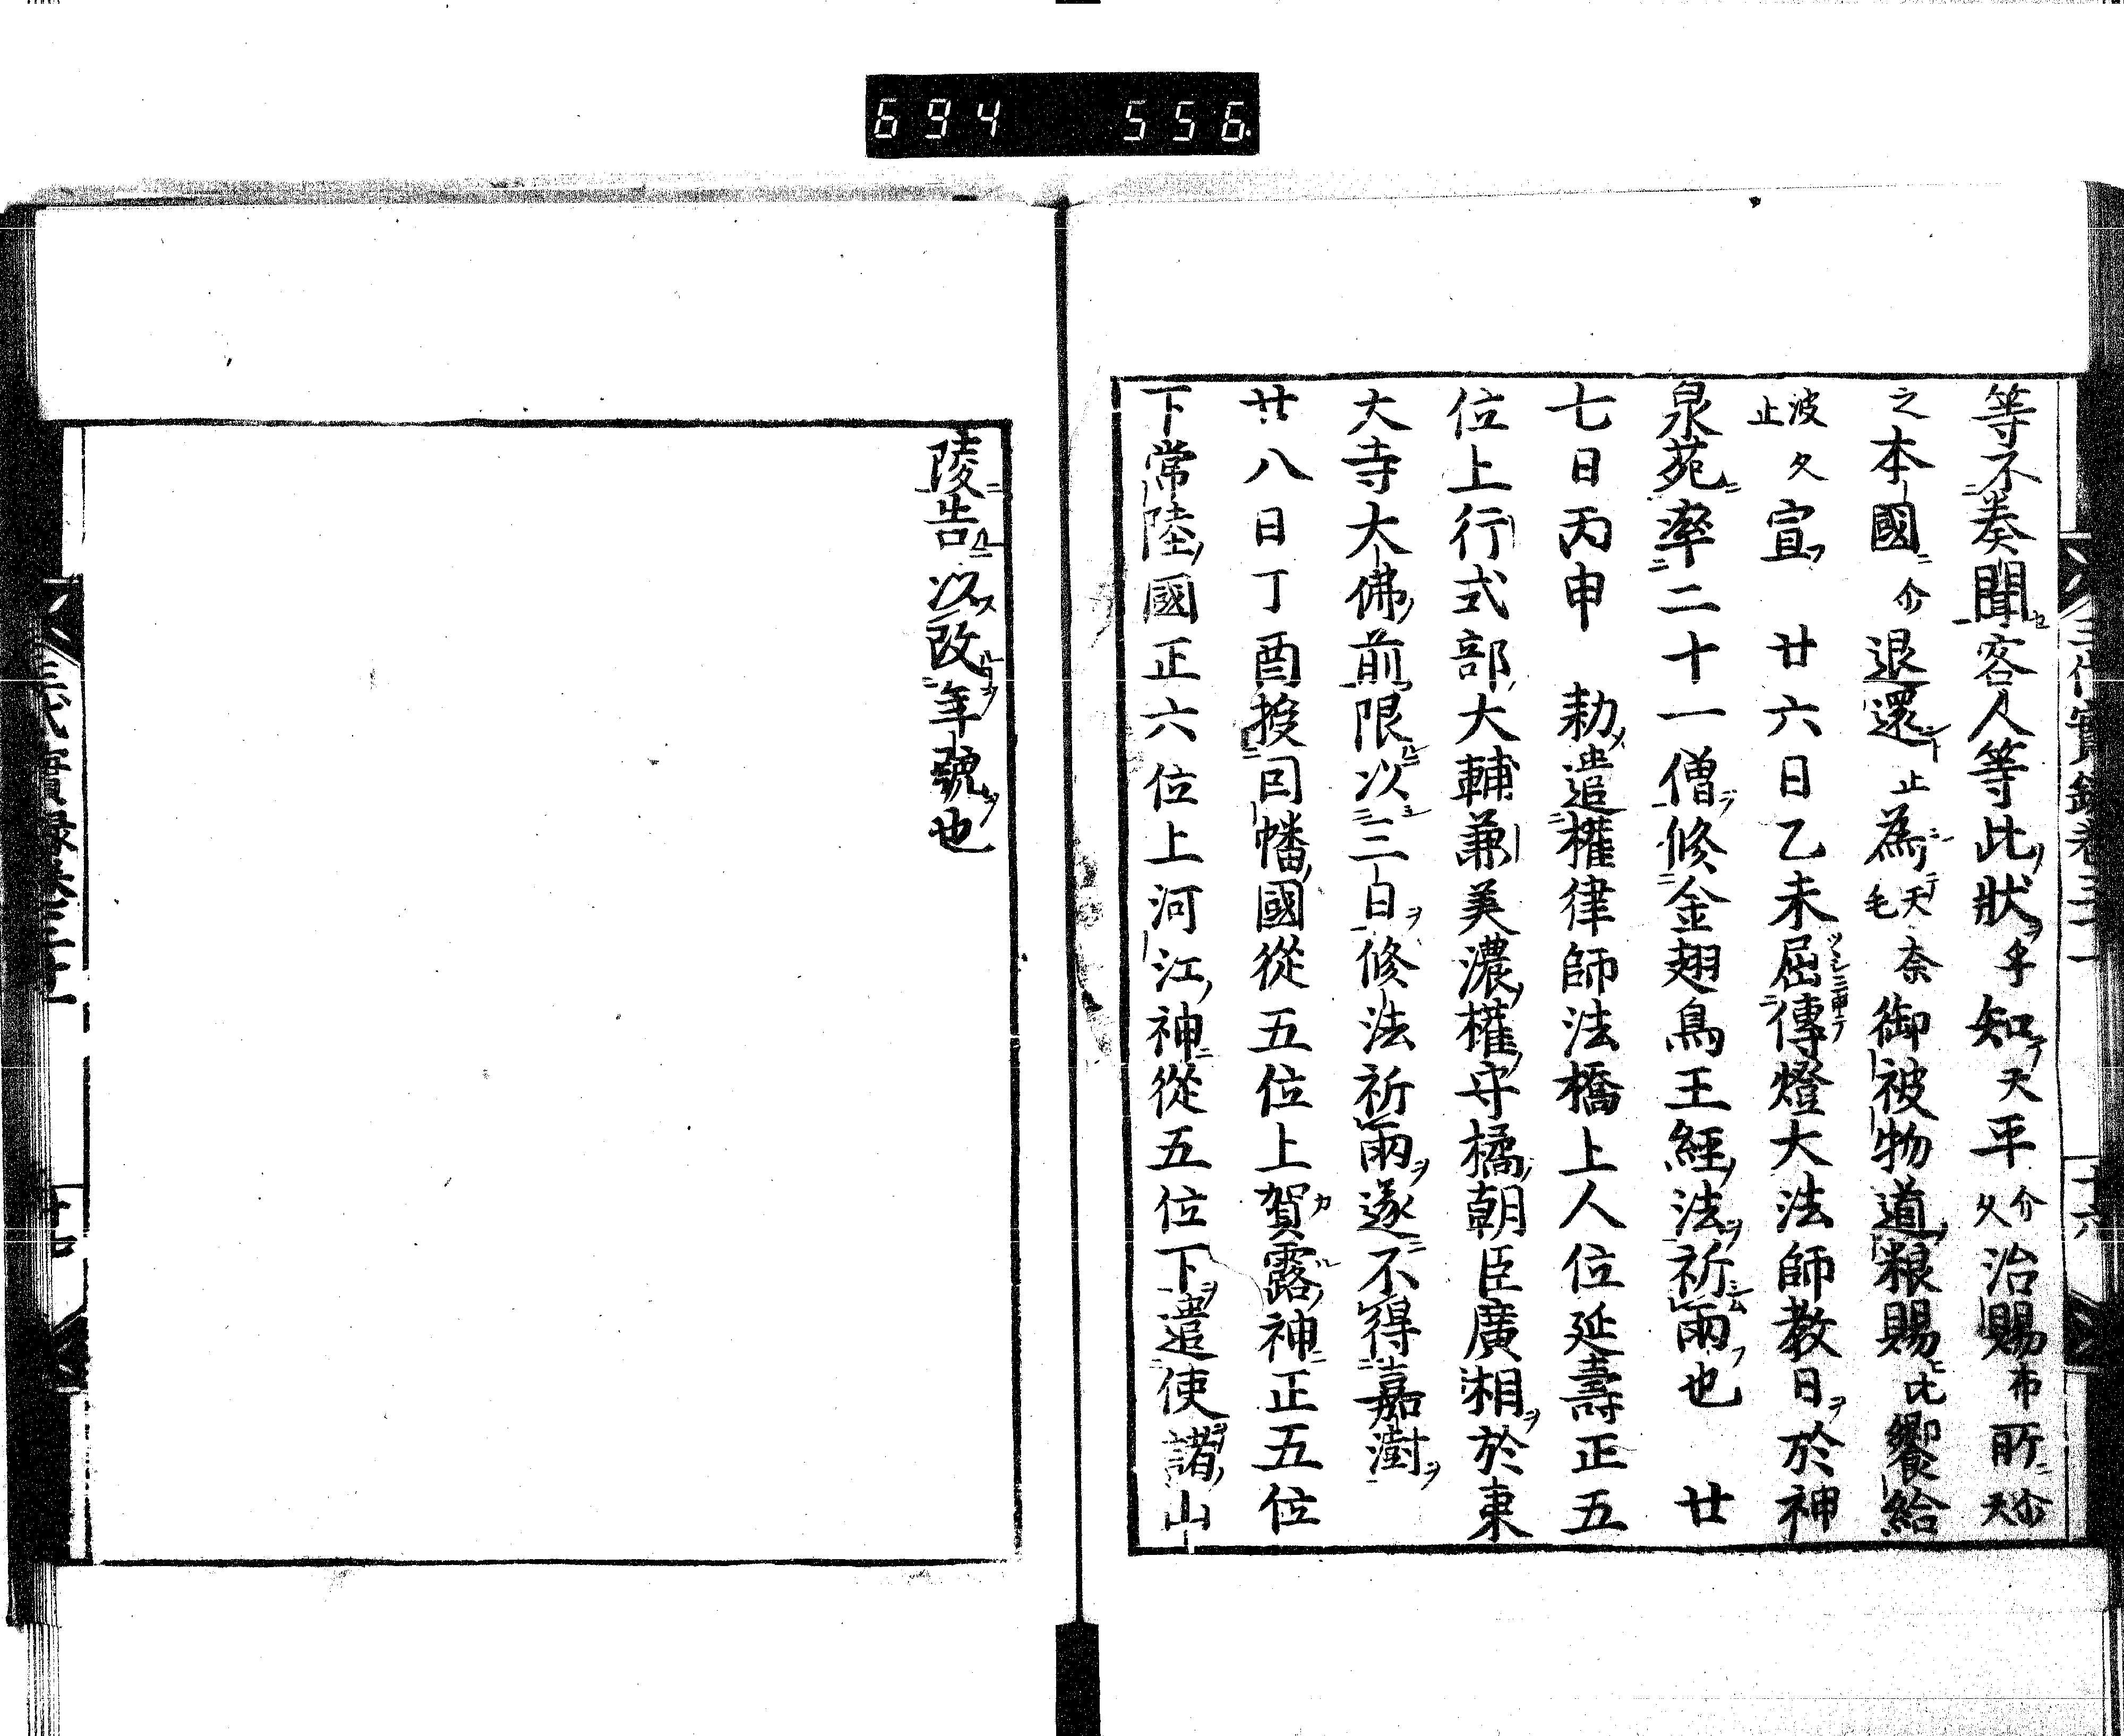 694 556.
三代實錄卷三十一 十六
等不奏聞客人等此狀乎知天平介久治賜布所尒天
之本國介退還止爲天毛奈御被物道粮賜比饗給
波久止宣 廿六日乙未屈傳燈大法師教日於神
泉苑率二十一僧修金翅鳥王經法祈雨也 廿
七日丙申 勅遣權律師法橋上人位延壽正五
位上行式部大輔兼美濃權守橘朝臣廣相於東
大寺大佛前限以三日修法祈雨遂不得嘉澍
廿八日丁酉授因幡國從五位上賀露神正五位
下常陸國正六位上河江神從五位下遣使諸山
陵告以改年號也
三代實錄卷三十一 十七